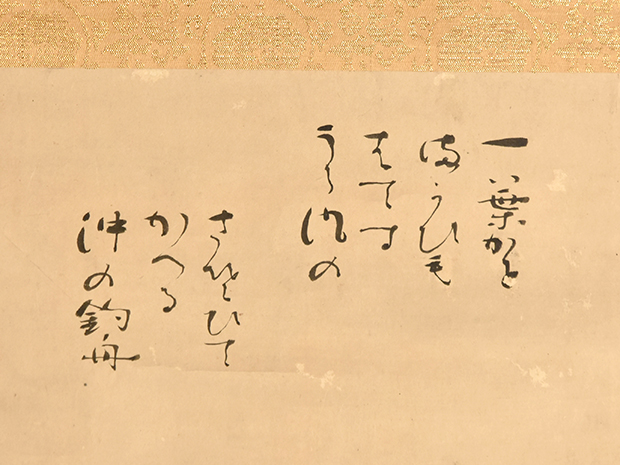 一葉かと
まかひも
はてす
うら浪の
さそひて
かへる
沖の釣舟